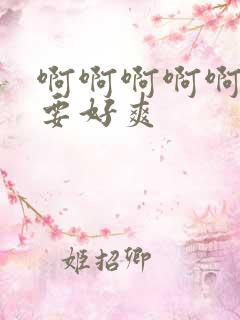 啊啊啊啊啊
要好爽
姬招卿